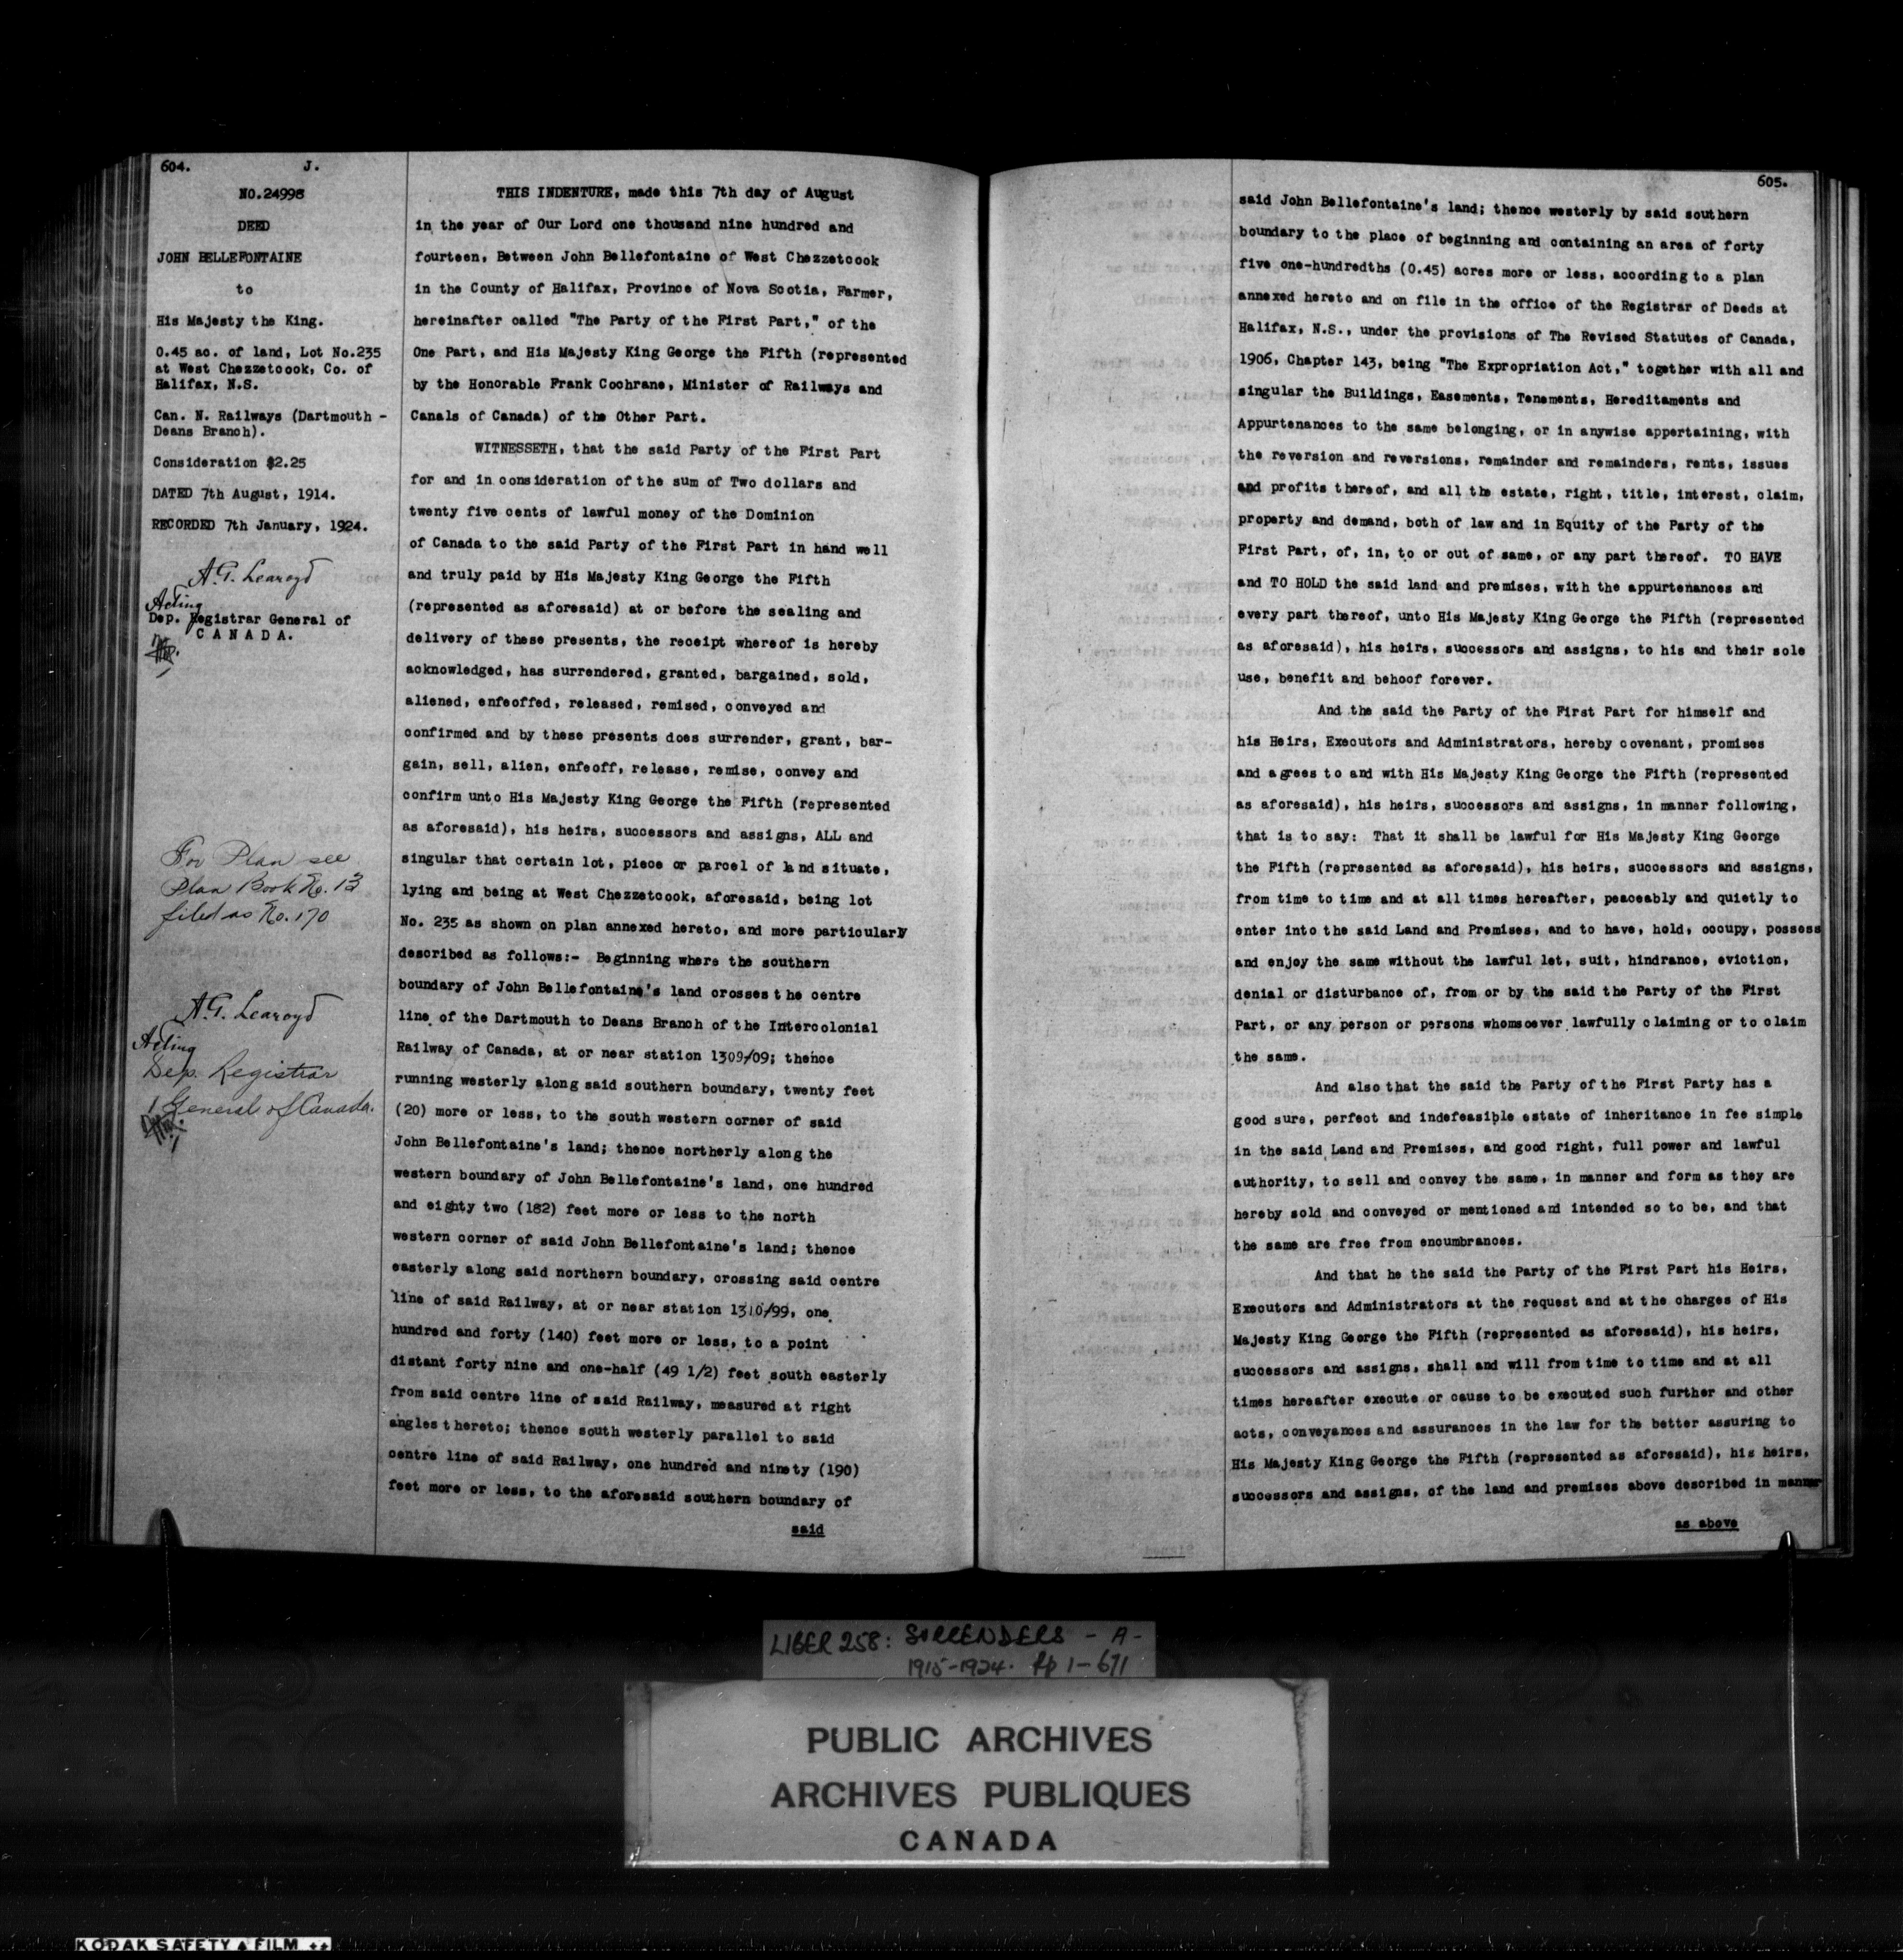 604.
J.
NO.24998
DEED
JOHN BELLEFONTAINE
to
His Majesty the King.
0.45 ac. of land, Lot No.235
at West Chezzetcook, Co. of
Halifax, N.S.
Can. N. Railways (Dartmouth -
Deans Branch).
Consideration $2.25
DATED 7th August, 1914.
RECORDED 7th January, 1924.
A.G. Learoyd
Acting
Dep. Registrar General of
CANADA.
For Plan see
Plan Book No. 13
filed as No. 170
A.G. Learoyd
Acting
Dep. Registrar
General of Canada.
THIS INDENTURE, made this 7th day of August
in the year of Our Lord one thousand nine hundred and
fourteen, Between John Bellefontaine of West Chezzetcook
in the County of Halifax, Province of Nova Scotia, Farmer,
hereinafter called "The Party of the First Part," of the
One Part, and His Majesty King George the Fifth (represented
by the Honorable Frank Cochrane, Minister of Railways and
Canals of Canada) of the Other Part.
WITNESSETH, that the said Party of the First Part
for and in consideration of the sum of Two dollars and
twenty five cents of lawful money of the Dominion
of Canada to the said Party of the First Part in hand well
and truly paid by His Majesty King George the Fifth
(represented as aforesaid) at or before the sealing and
delivery of these presents, the receipt whereof is hereby
acknowledged, has surrendered, granted, bargained, sold,
aliened, enfeoffed, released, remised, conveyed and
confirmed and by these presents does surrender, grant, bar-
gain, sell, alien, enfeoff, release, remise, convey and
confirm unto His Majesty King George the Fifth (represented
as aforesaid), his heirs, successors and assigns, ALL and
singular that certain lot, piece or parcel of land situate,
lying and being at West Chezzetcook, aforesaid, being lot
No. 235 as shown on plan annexed hereto, and more particularly
described as follows:- Beginning where the southern
boundary of John Bellefontaine's land crosses the centre
line of the Dartmouth to Deans Branch of the Intercolonial
Railway of Canada, at or near station 1309/09; thence
running westerly along said southern boundary, twenty feet
(20) more or less, to the south western corner of said
John Bellefontaine's land; thence northerly along the
western boundary of John Bellefontaine's land, one hundred
and eighty two (182) feet more or less to the north
western corner of said John Bellefontaine's land; thence
easterly along said northern boundary, crossing said centre
line of said Railway, at or near station 1310/99, one
hundred and forty (140) feet more or less, to a point
distant forty nine and one-half (49 1/2) feet south easterly
from said centre line of said Railway, measured at right
angles thereto; thence south westerly parallel to said
centre line of said Railway, one hundred and ninety (190)
feet more or less, to the aforesaid southern boundary of
said
605.
said John Bellefontaine's land; thence westerly by said southern
boundary to the place of beginning and containing an area of forty
five one-hundredths (0.45) acres more or less, according to a plan
annexed hereto and on file in the office of the Registrar of Deeds at
Halifax, N.S., under the provisions of The Revised Statutes of Canada,
1906, Chapter 143, being "The Expropriation Act," together with all and
singular the Buildings, Easements, Tenements, Hereditaments and
Appurtenances to the same belonging, or in anywise appertaining, with
the reversion and reversions, remainder and remainders, rents, issues
and profits thereof, and all the estate, right, title, interest, claim,
property and demand, both of law and in Equity of the Party of the
First Part, of, in, to or out of same, or any part thereof. TO HAVE
and TO HOLD the said land and premises, with the appurtenances and
every part thereof, unto His Majesty King George the Fifth (represented
as aforesaid), his heirs, successors and assigns, to his and their sole
use, benefit and behoof forever.
And the said the Party of the First Part for himself and
his Heirs, Executors and Administrators, hereby covenant, promises
and agrees to and with His Majesty King George the Fifth (represented
as aforesaid), his heirs, successors and assigns, in manner following,
that is to say: That it shall be lawful for His Majesty King George
the Fifth (represented as aforesaid), his heirs, successors and assigns,
from time to time and at all times hereafter, peaceably and quietly to
enter into the said Land and Premises, and to have, hold, occupy, possess
and enjoy the same without the lawful let, suit, hindrance, eviction,
denial or disturbance of, from or by the said the Party of the First
Part, or any person or persons whomsoever lawfully claiming or to claim
the same.
And also that the said the Party of the First Party has a
good sure, perfect and indefeasible estate of inheritance in fee simple
in the said Land and Premises, and good right, full power and lawful
authority, to sell and convey the same, in manner and form as they are
hereby sold and conveyed or mentioned and intended so to be, and that
the same are free from encumbrances.
And that he the said the Party of the First Part his Heirs,
Executors and Administrators at the request and at the charges of His
Majesty King George the Fifth (represented as aforesaid), his heirs,
successors and assigns, shall and will from time to time and at all
times hereafter execute or cause to be executed such further and other
acts, conveyances and assurances in the law for the better assuring to
His Majesty King George the Fifth (represented as aforesaid), his heirs,
successors and assigns, of the land and premises above described in manner
as above
LIBER 258: SURRENDERS - A -
1915-1924. pp 1-671
PUBLIC ARCHIVES
ARCHIVES PUBLIQUES
CANADA
KODAK SAFETY FILM